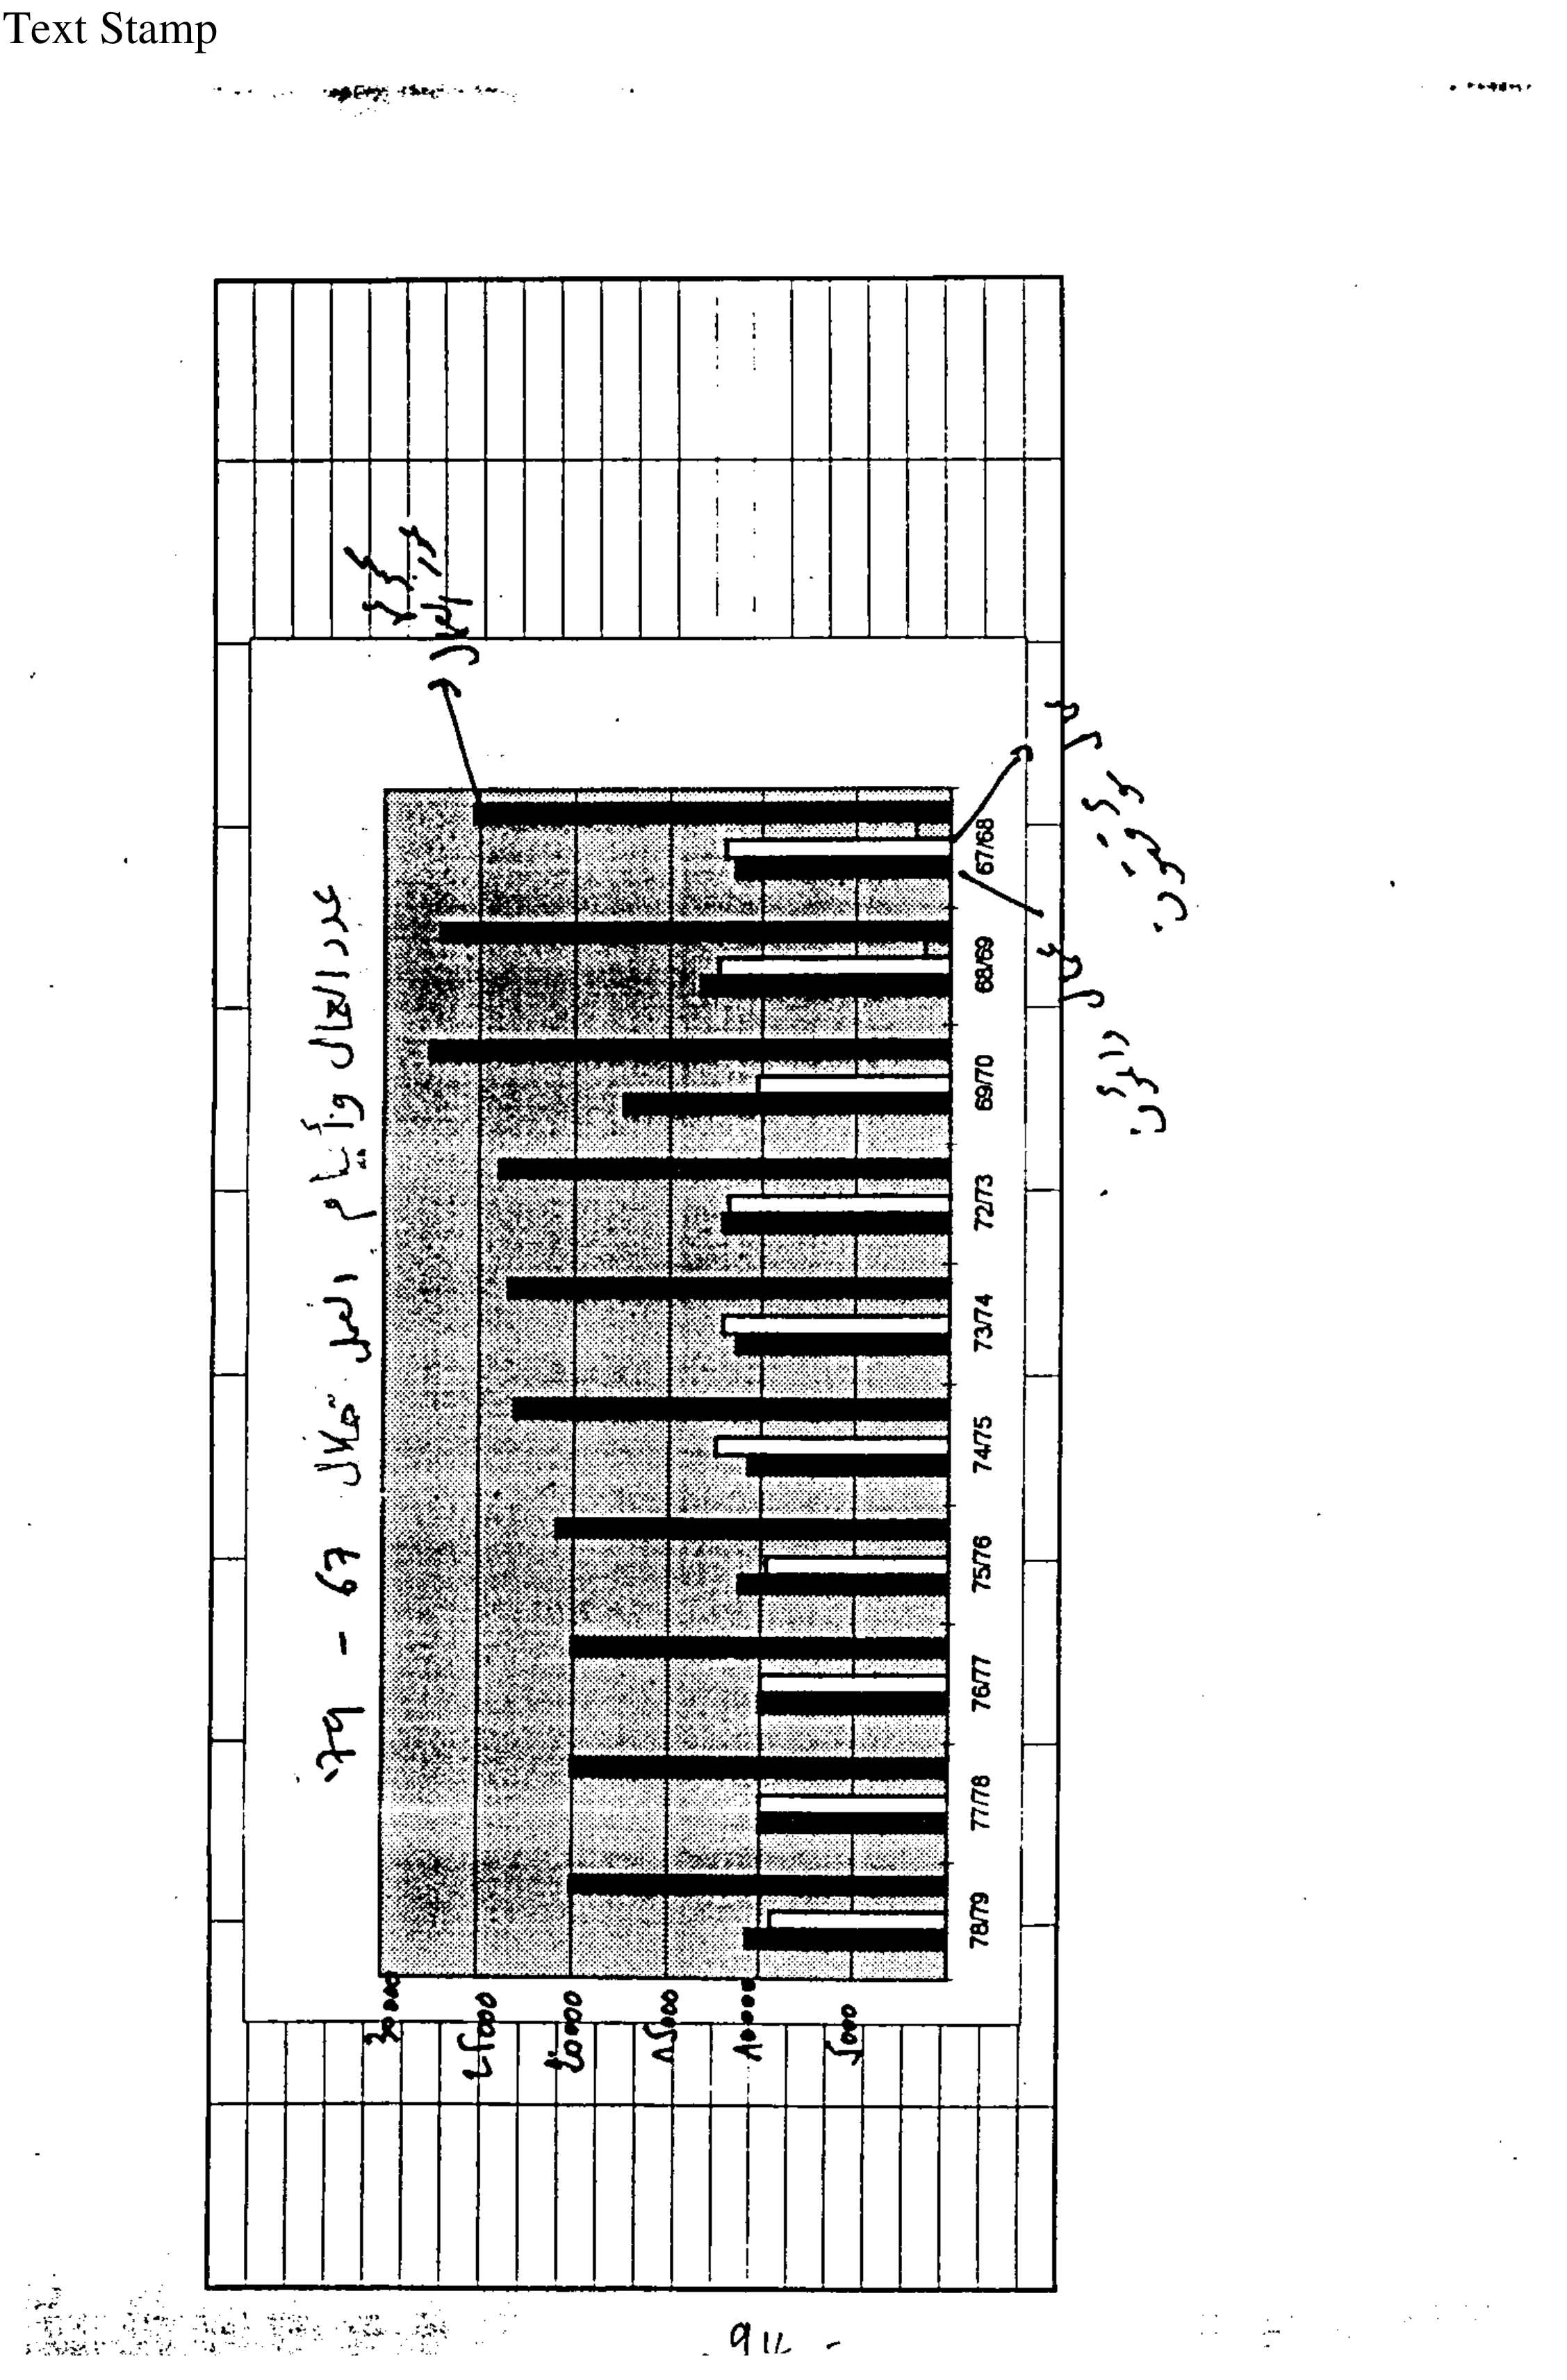 Text Stamp
عدد العمال وأيام العمل خلال 67 - 79
30000
25000
20000
15000
10000
5000
78/79
77/78
76/77
75/76
74/75
73/74
72/73
69/70
68/69
67/68
عمال
دائمون
عمال